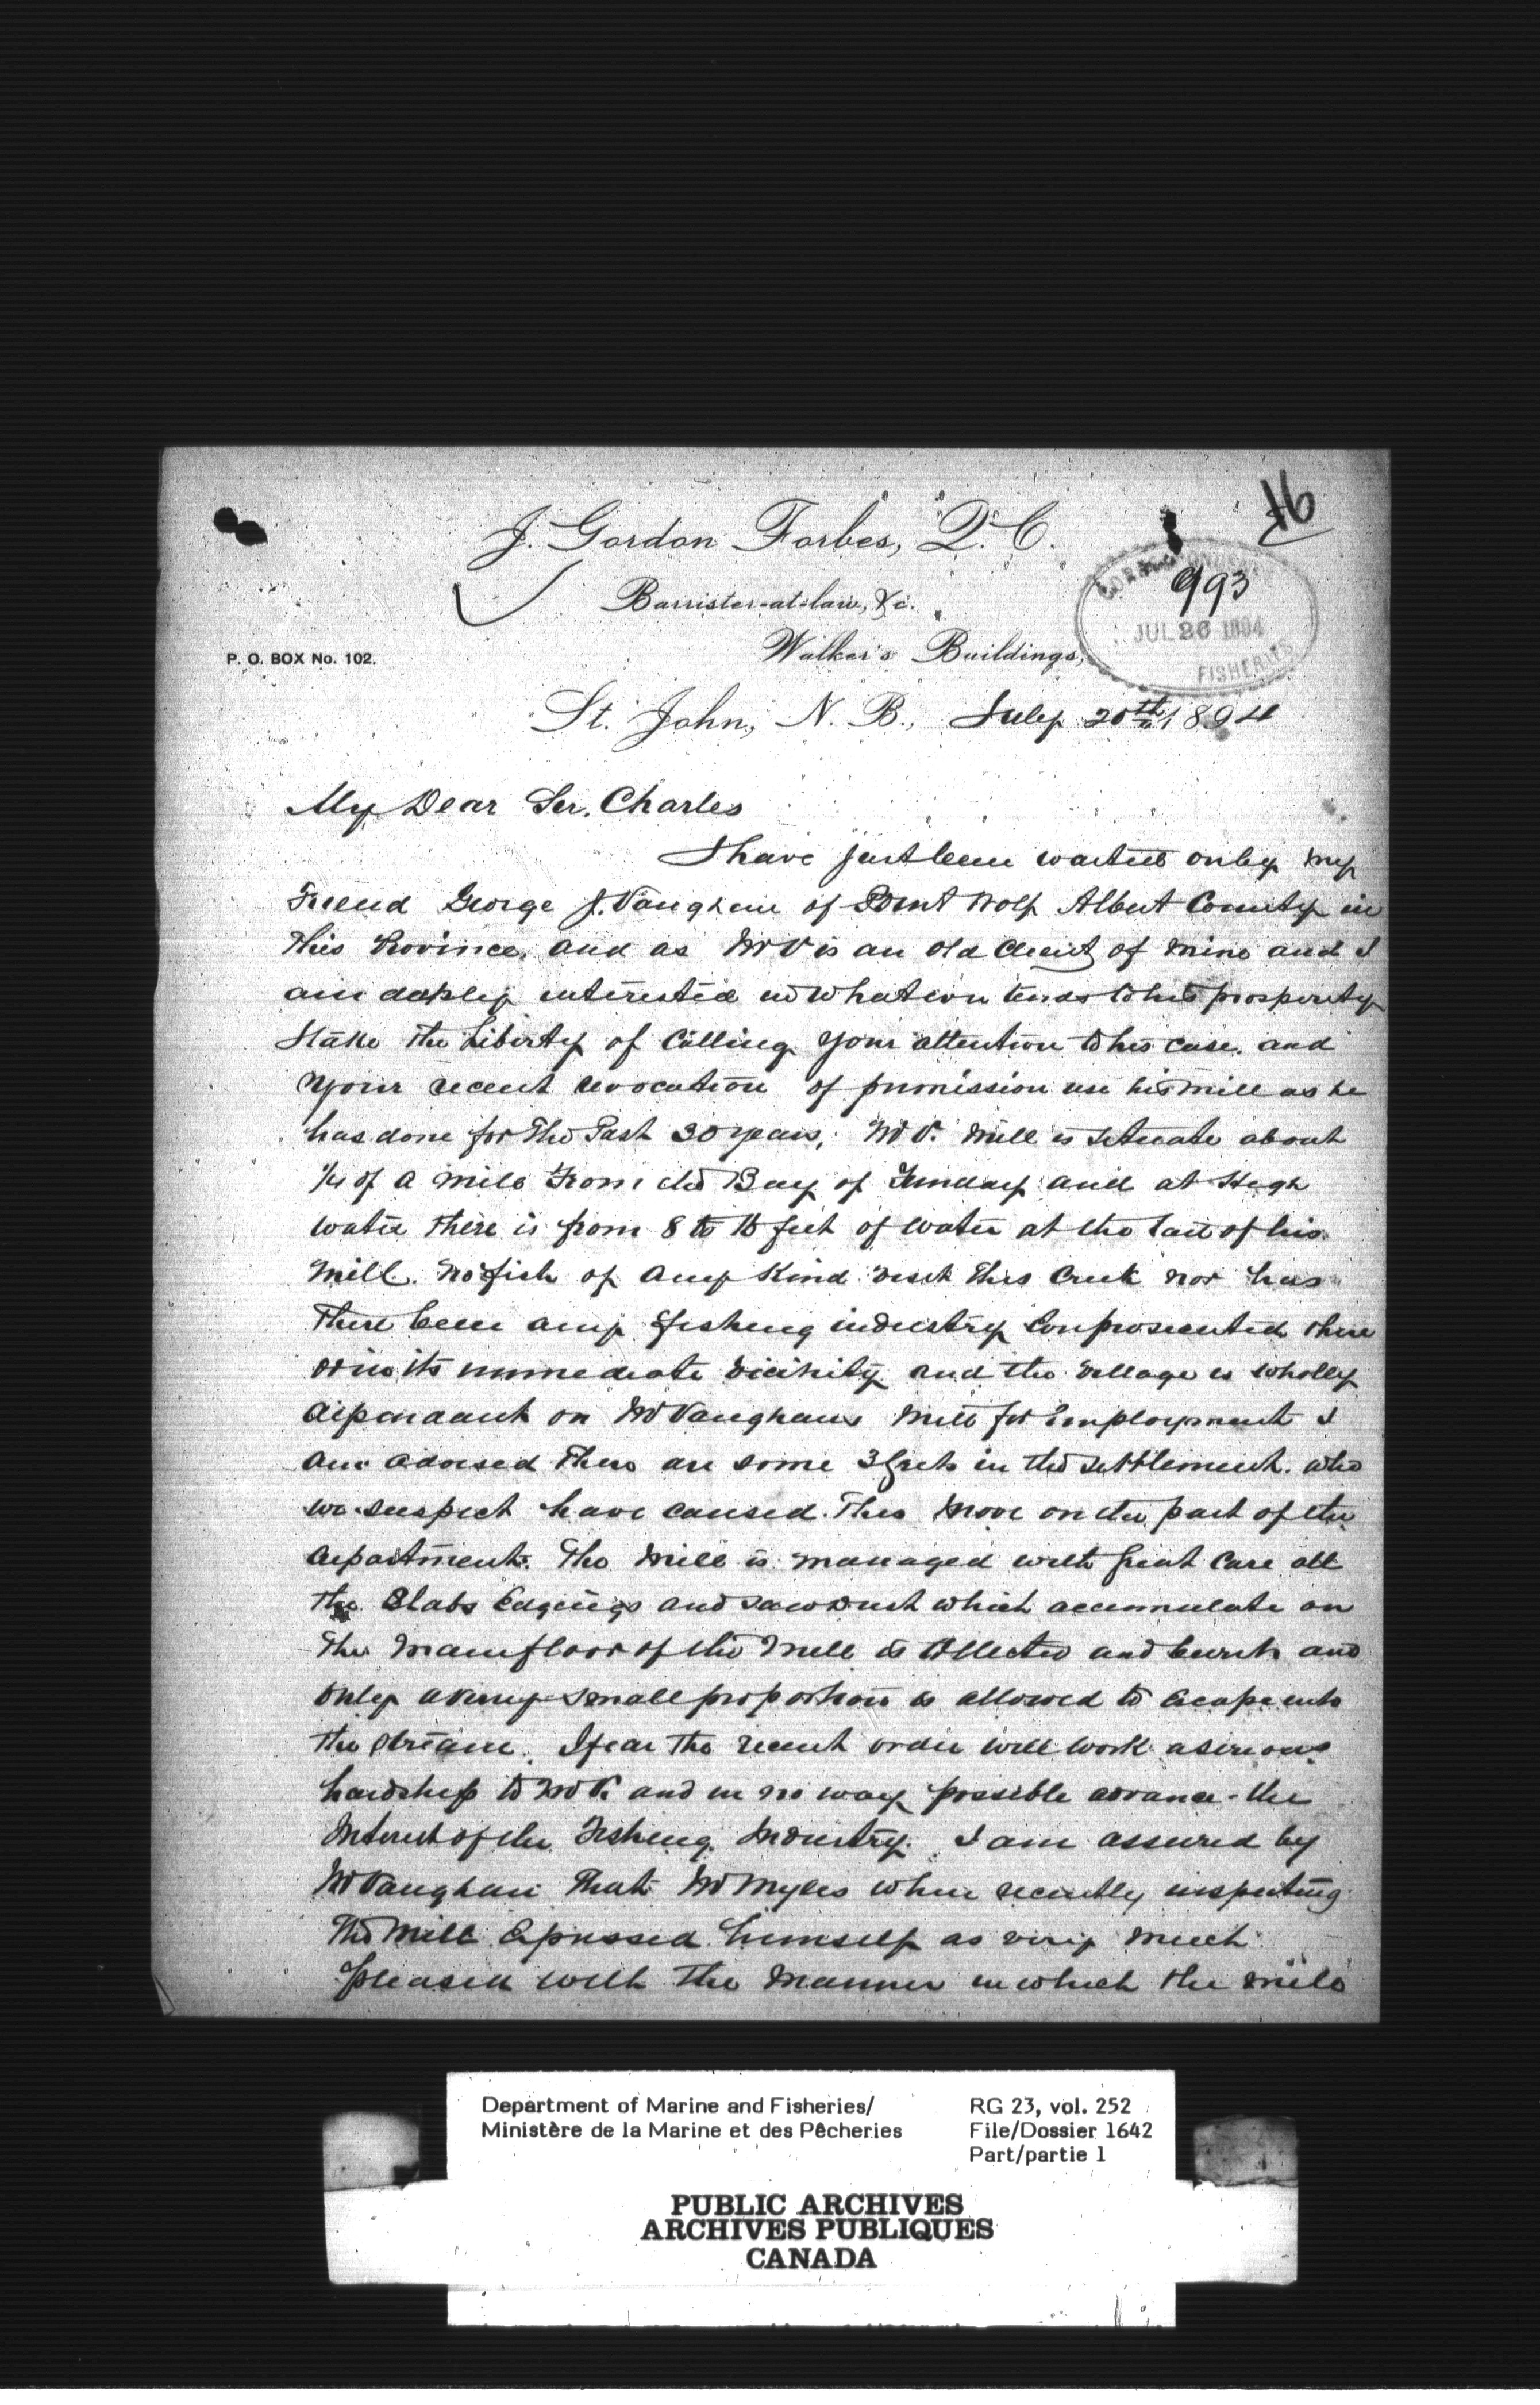 16
J. Gordon Forbes, Q. C.
Barrister-at-law, &c.
CORRESPONDENCE
993
JUL 26 1894
FISHERIES
Walker's Buildings,
P. O. BOX No. 102.
St. John, N. B., July 20th 1894
My Dear Sir Charles
I have just been waited on by my
Friend George J. Vaughan of Point Wolf Albert County in
this Province, and as Mr V is an old client of mine and I
am deeply interested in whatever tends to his prosperity
I take the Liberty of Calling your attention to his case. and
your recent revocation of permission use his mill as he
has done for the Past 30 years, Mr V. Mill is situate about
1/4 of a mile From the Bay of Fundy and at High
water there is from 8 to 16 feet of water at the tail of his
Mill. No fish of any Kind visit this Creek nor has
there been any fishing industry prosecuted there
or in its immediate vicinity and the village is wholly
dependant on Mr Vaughans Mill for Employment I
am advised there are some 3 in the settlement. who
we suspect have caused this move on the part of the
department. The Mill is managed with great Care all
the Slabs Edgings and sawdust which accumulate on
the main floor of the Mill is Collected and burnt and
only a very small proportion is allowed to escape into
the stream. I fear the recent order will work a serious
hardship to Mr V. and in no way possible advance the
Interest of the Fishing Industry. I am assured by
Mr Vaughan that Mr Myles when recently inspecting
the Mill Expressed himself as very much
pleased with the Manner in which the mill
Department of Marine and Fisheries/
Ministère de la Marine et des Pêcheries
RG 23, vol. 252
File/Dossier 1642
Part/partie 1
PUBLIC ARCHIVES
ARCHIVES PUBLIQUES
CANADA